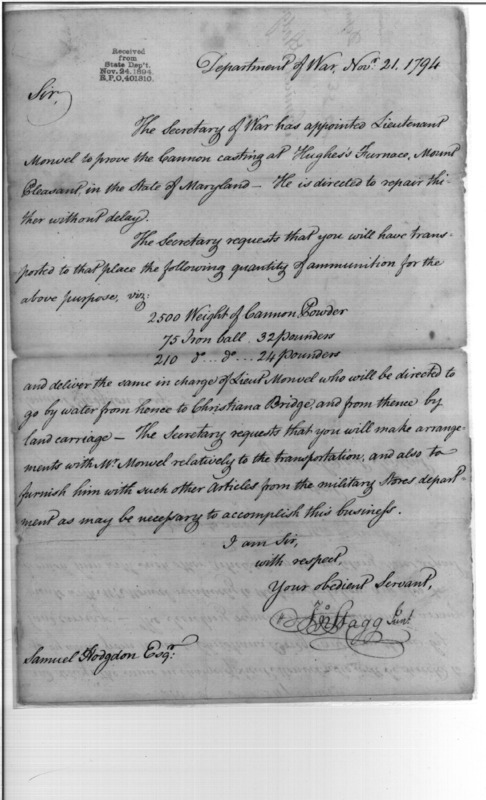 Received
from
State Dep't.
Nov. 24, 1894.
R.P.O, 401310.
Department of War, Novr. 21. 1794
Sir,
The Secretary of War has appointed Lieutenant
Monvel to prove the Cannon casting at Hughes's Furnace, Mount
Pleasant, in the State of Maryland — He is directed to repair thi-
ther without delay.
The Secretary requests that you will have trans-
ported to that place the following quantity of ammunition for the
above purpose, viz:
2500 Weight of Cannon Powder
75 Iron ball . 32 pounders
210 do .. do ... 24 pounders
and deliver the same in charge of Lieut Monvel who will be directed to
go by water from hence to Christiana Bridge, and from thence by
land carriage — The Secretary requests that you will make arrange-
ments with Mr Monvel relatively to the transportation, and also to
furnish him with such other Articles from the military Stores depart-
ment as may be necessary to accomplish this business.
I am Sir,
with respect,
Your obedient Servant,
Jno Stagg Junr
Samuel Hodgdon Esqr.